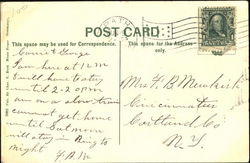 POST CARD
This space may be used for Correspondence.
This space is for the Address only.
Carrie & George
I am here at 12 M
& will have to stay
until 2-20 pm
am on a slow train
cannot get home
until Sat noon
will stay in Bing to
night
F. B. M
Mrs F. B. Newkirk
Cincinnatus
Cortland Co
N. Y.